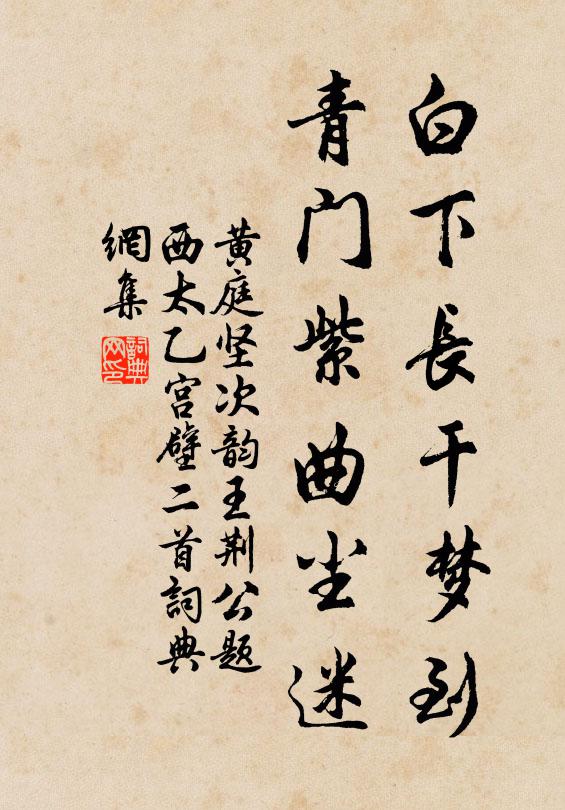 白下長干梦到
青门紫曲尘迷
黄庭坚次韵王荆公题
西太乙宫壁二首詞典
網集
詞典
网印